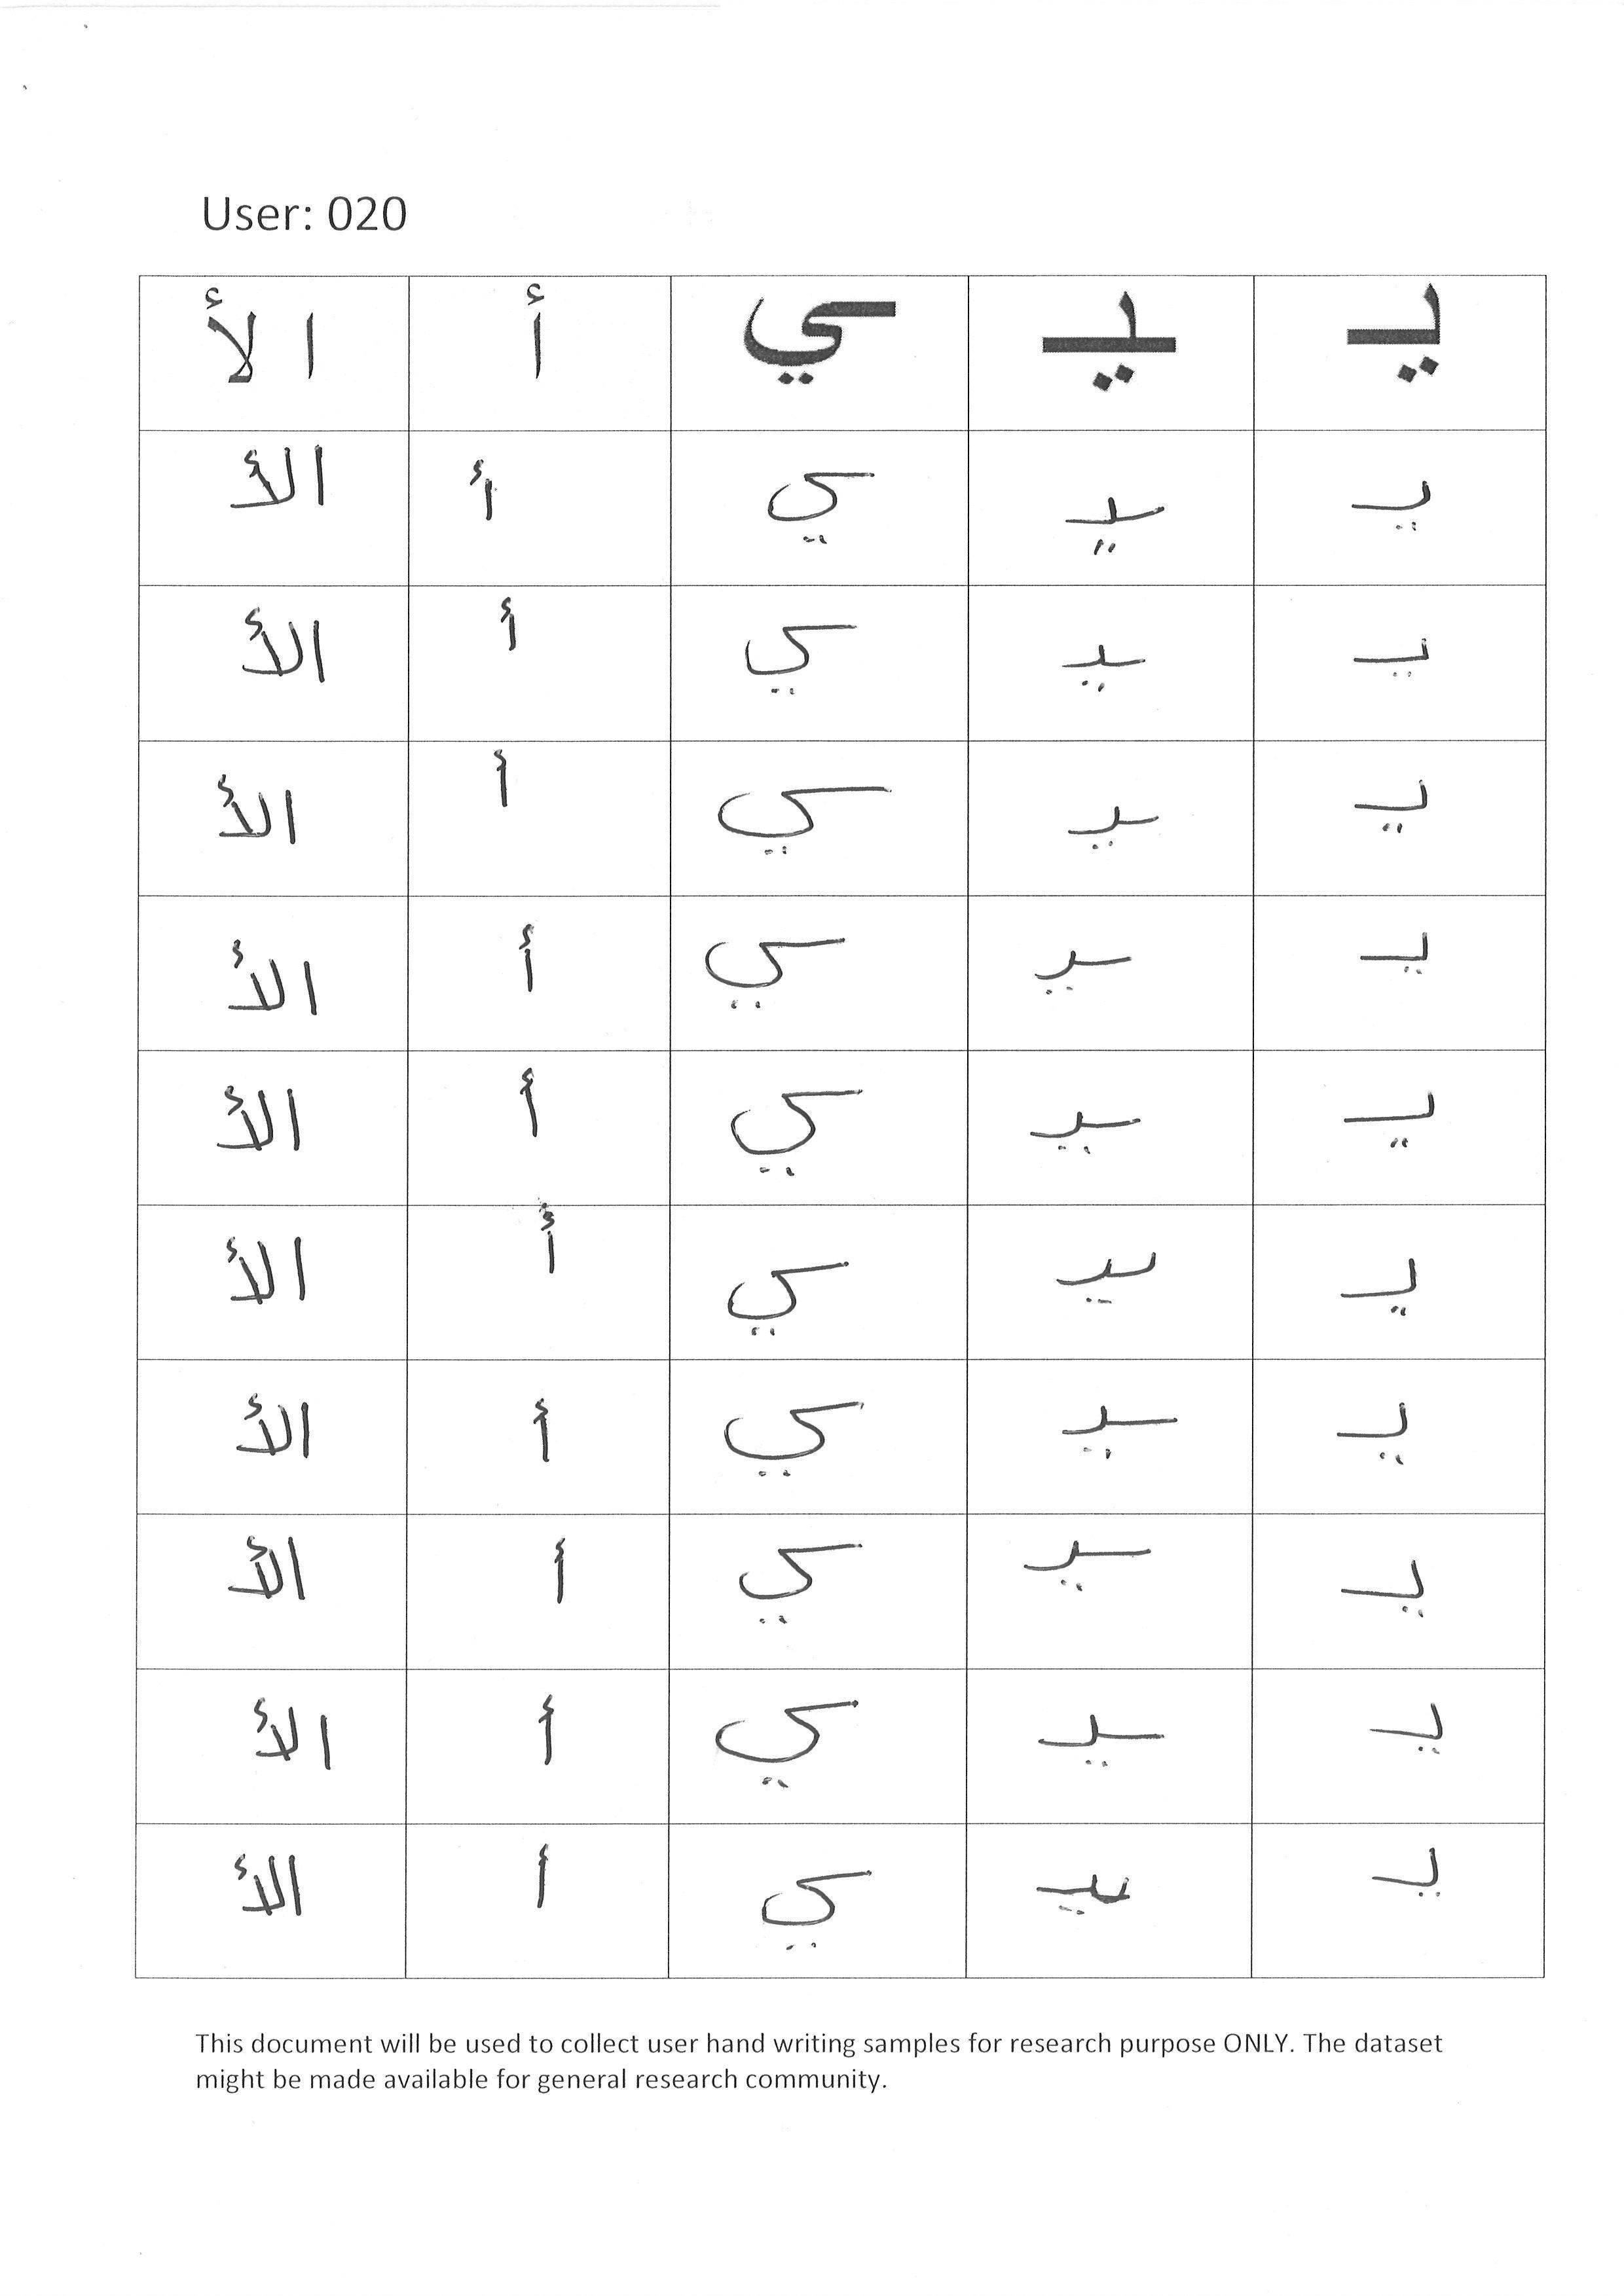 User: 020
يـ ـيـ ـي أ ا لأ
يـ ـيـ ـي أ الأ
يـ ـيـ ـي أ الأ
يـ ـيـ ـي أ الأ
يـ ـيـ ـي أ الأ
يـ ـيـ ـي أ الأ
يـ ـيـ ـي أ الأ
يـ ـيـ ـي أ الأ
يـ ـيـ ـي أ الأ
يـ ـيـ ـي أ الأ
يـ ـيـ ـي أ الأ
This document will be used to collect user hand writing samples for research purpose ONLY. The dataset
might be made available for general research community.